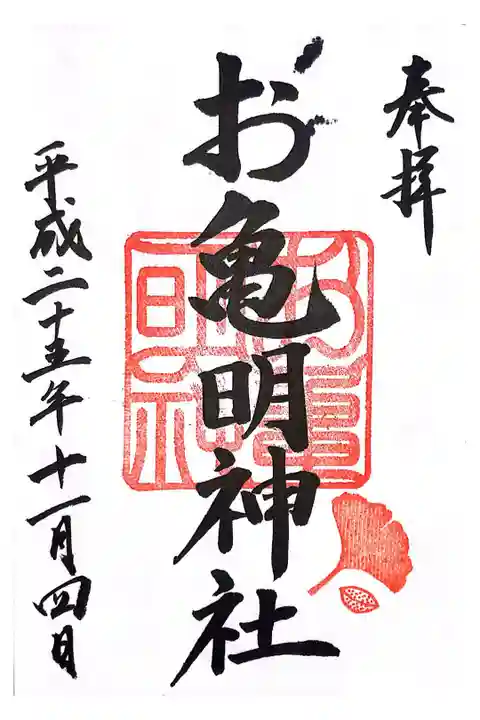 奉拝
お亀明神社
平成二十五年十一月四日